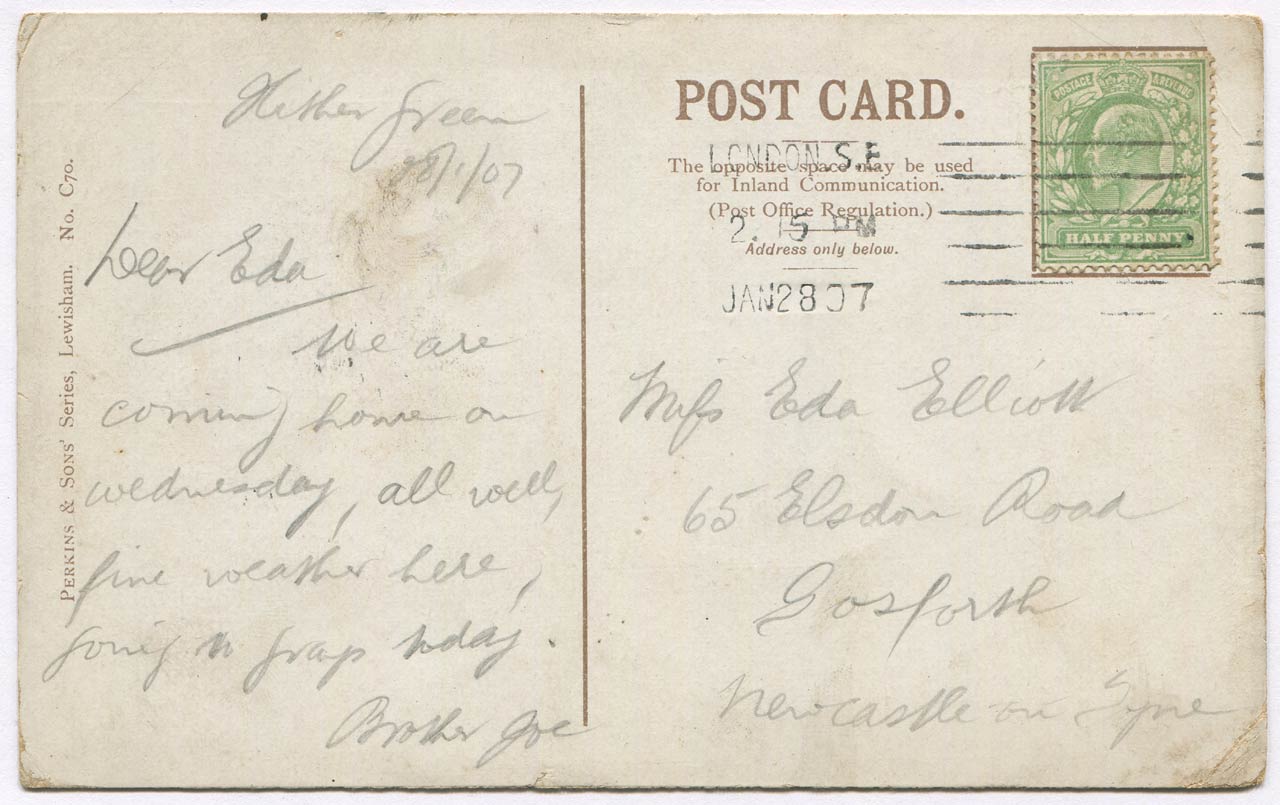 Hither Green
28/1/07
Dear Eda
We are
coming home on
wednesday, all well,
fine weather here,
going to Grays today.
Brother Joe
PERKINS & SONS' Series, Lewisham. No. C70.
POST CARD.
The opposite space may be used
for Inland Communication.
(Post Office Regulation.)
Address only below.
LONDON.S.E
2.15 PM
JAN 28 07
POSTAGE & REVENUE
HALF PENNY
Miss Eda Elliott
65 Elsdon Road
Gosforth
Newcastle on Tyne